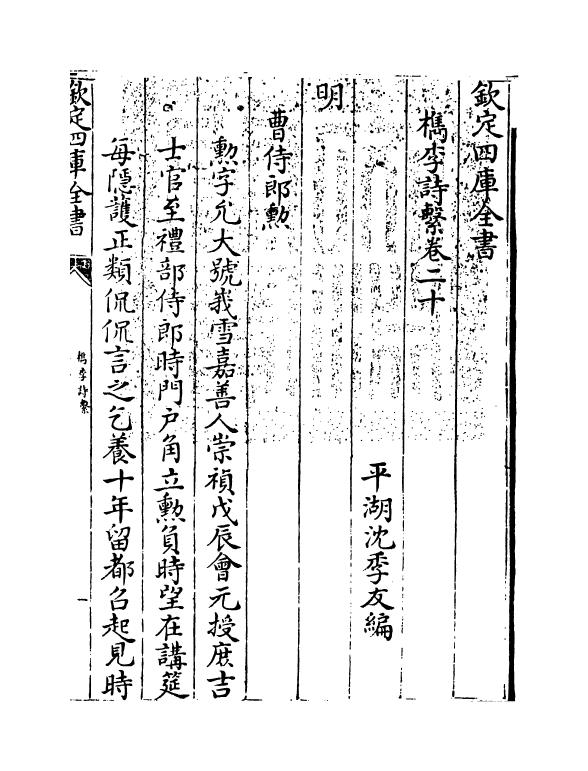 欽定四庫全書
檇李詩繫卷二十
平湖沈季友編
明
曹侍郎勲
勲字允大號峩雪嘉善人崇禎戊辰會元授庶吉
士官至禮部侍郎時門戶角立勲負時望在講筵
每隱護正類侃侃言之乞養十年留都召起見時
欽定四庫全書
檇李詩繫
一